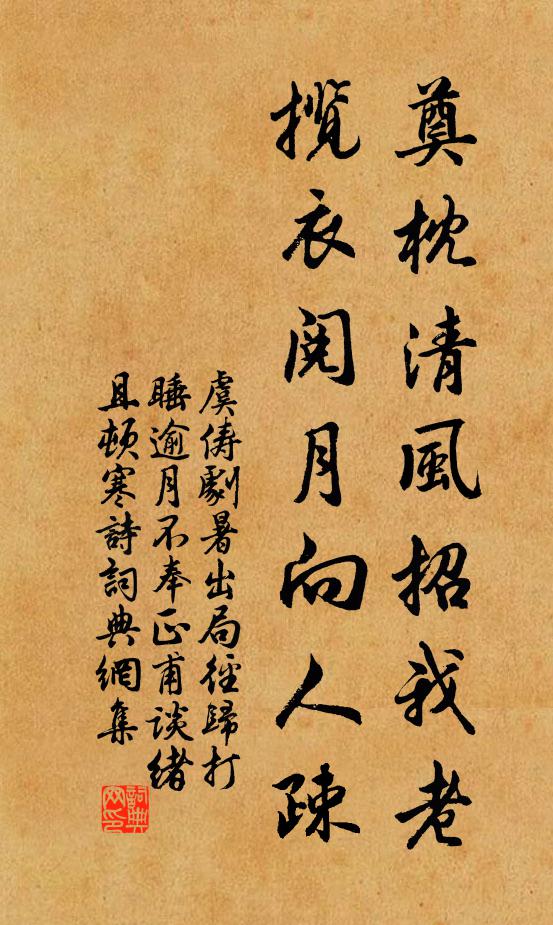 奠枕清風招我老
攬衣閱月向人疎
虞儔劇暑出局徑歸打
睡逾月不奉正甫談緒
且頓寒詩詞典網集
詞典網印